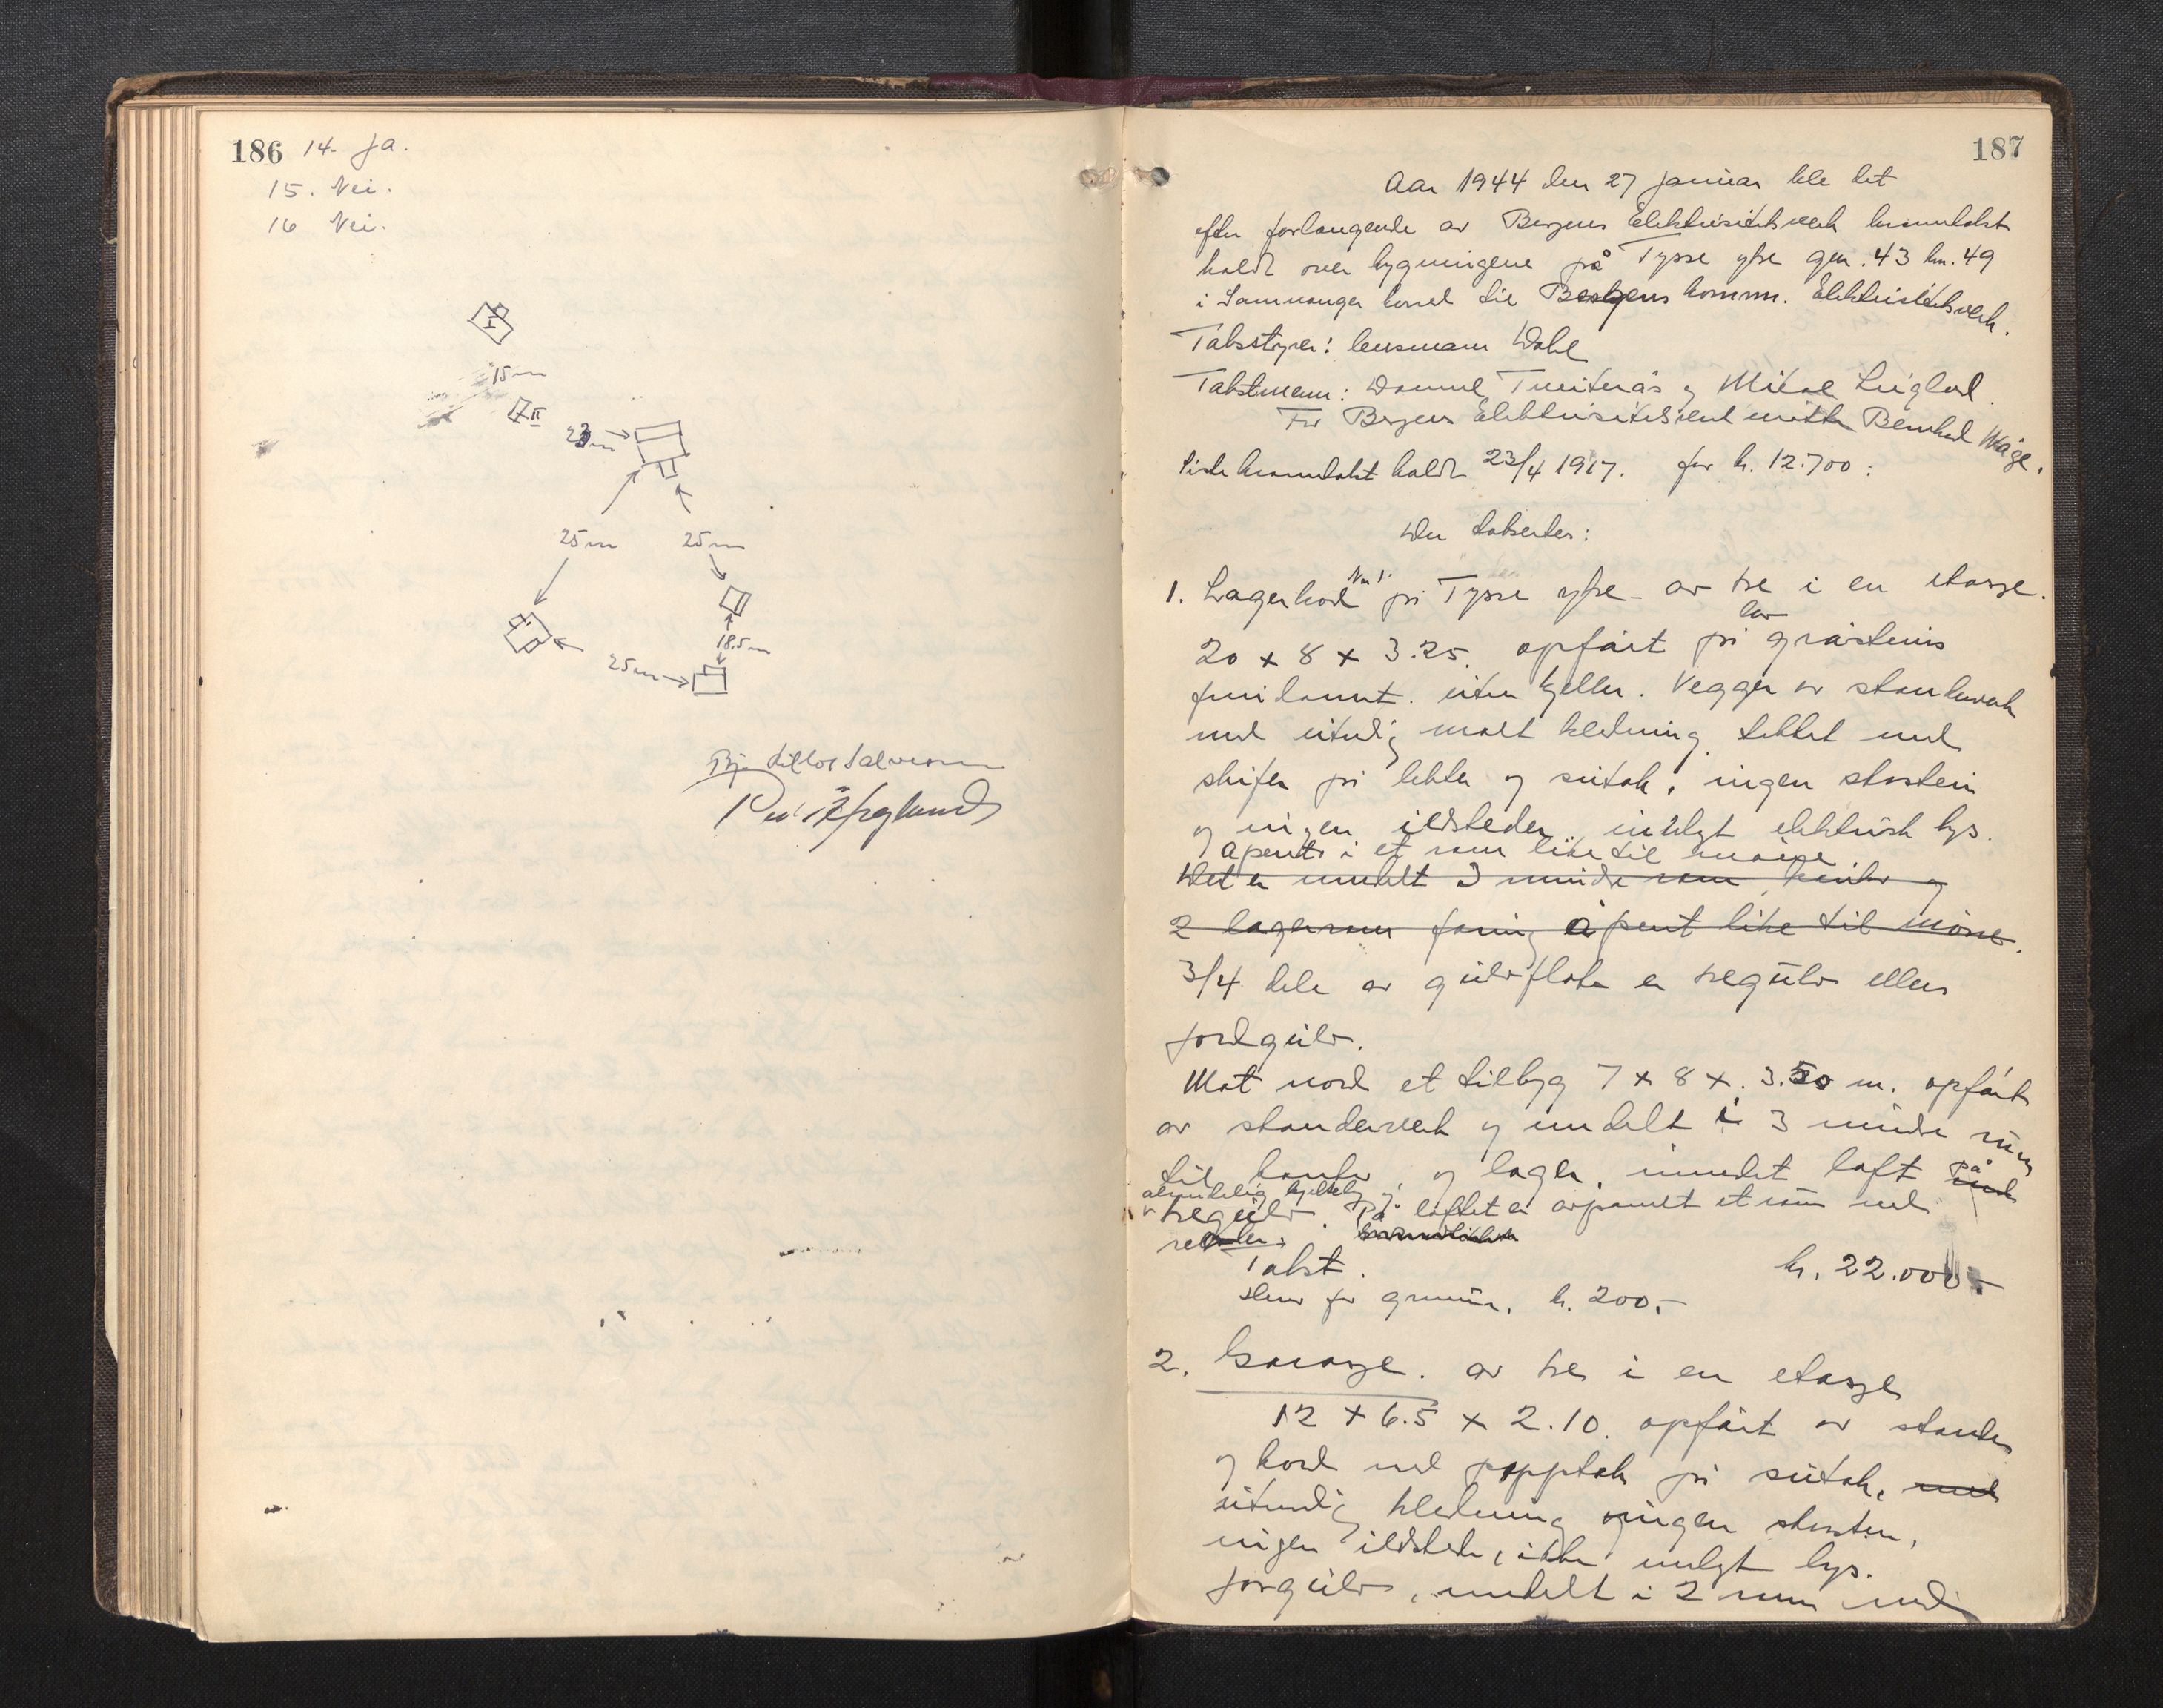 186 14. Ja.
15. Nei.
16 Nei.
I
15 m
II
23 m
25 m 25 m
18.5 m
25 m
187
Aar 1944 den 27 januar ble det
efter forlangende av Bergens Elektrisitetsverk branntakst
holdt over bygningene på Tysse ytre gnr. 43 bnr. 49
i Samnanger herred til Bergens komm. Elektrisitetsverk.
Takstmenn: og
For Bergens Elektrisitetsverk møtte Bernhard Måge.
Siste branntakst holdt 23/4 1917. for kr. 12.700:
Der taksertes:
1. Lagerhus Nr 1. på Tysse ytre - av tre i en etasje.
20 x 8 x 3.25. opført på lav gråsteins
fundament. uten kjeller. Vegger av stenderverk
med utvendig malt kledning, tekket med
skifer på lekter og sutak, ingen skorstein
og ingen ildsteder, innlagt elektrisk lys.
åpent i et rom like til mønne.
Det er inndelt 3 mindre rom, kontor og
2 lagerrom åpent like til mønne.
3/4 dele av gulvflaten er tregulv ellers
jordgulv.
Mot nord et tilbygg 7 x 8 x 3.50 m. opført
av stenderverk og inndelt i 3 mindre rum
til kontor og lager, innredet loft på
tregulv. På loftet er avpanelt et rum med
Takst. kr. 22.000.-
Herav for grunnm. kr. 200.-
2. Garasje. av tre i en etasje
12 x 6.5 x 2.10. opført av stender
og bord med papptak på sutak, med
utvendig kledning ingen skorsten,
ingen ildsteder, ikke innlagt lys.
jorgulv, inndelt i 2 rum med